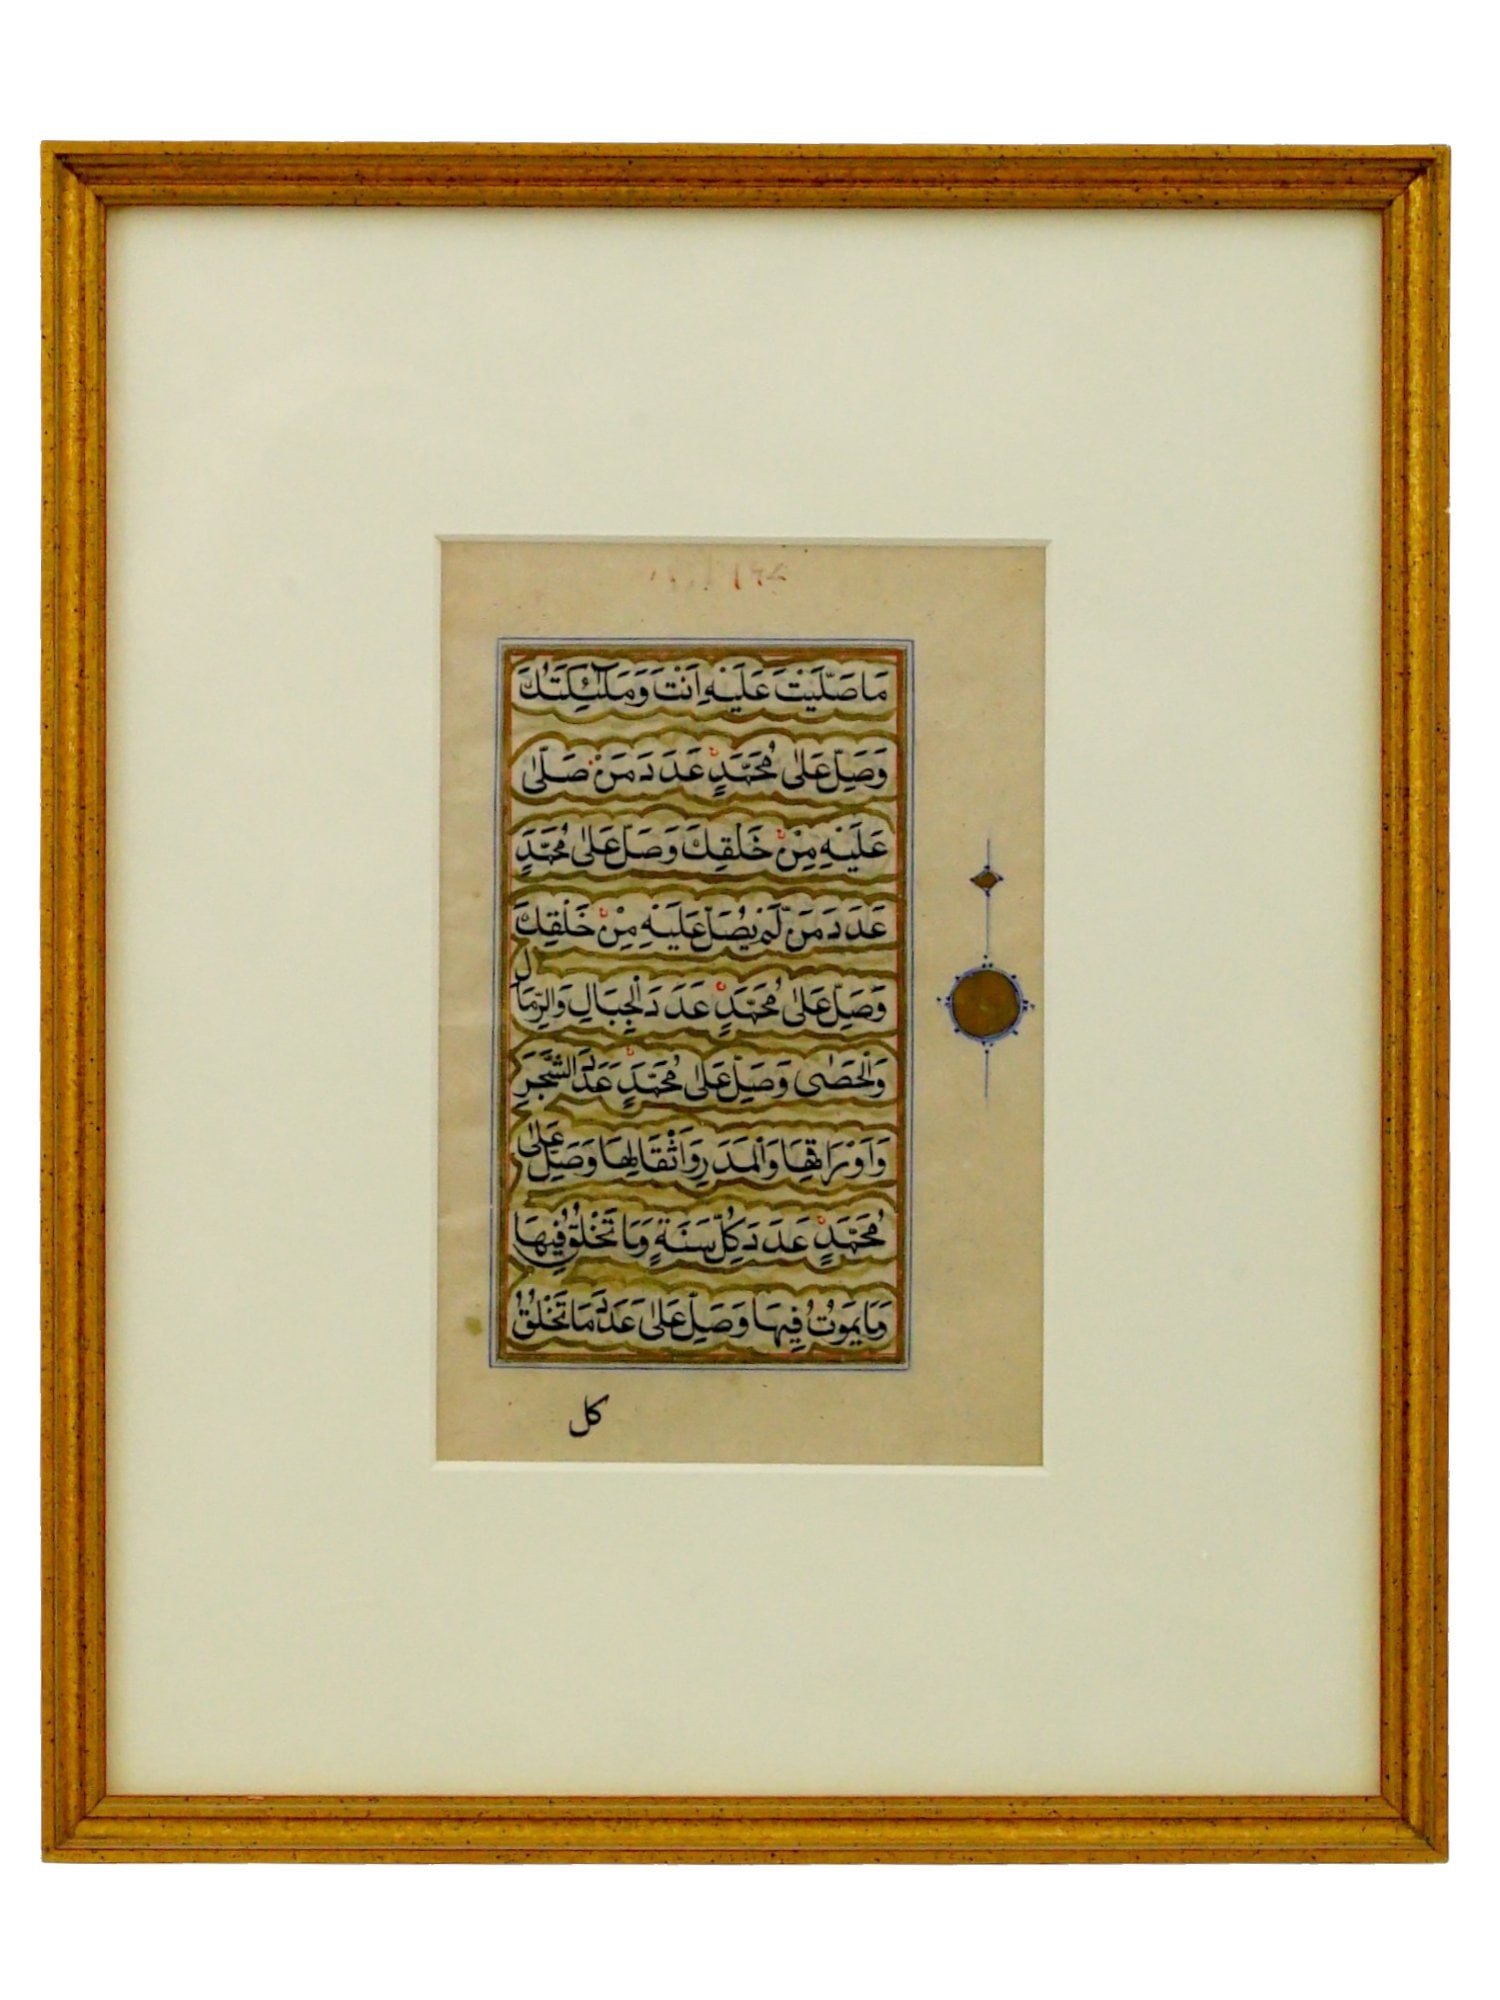 مَا صَلَّيْتَ عَلَيْهِ اَنْتَ وَمَلٰٓئِكَتُكَ
وَصَلِّ عَلٰى مُحَمَّدٍ عَدَدَ مَنْ صَلّٰى
عَلَيْهِ مِنْ خَلْقِكَ وَصَلِّ عَلٰى مُحَمَّدٍ
عَدَدَ مَنْ لَّمْ يُصَلِّ عَلَيْهِ مِنْ خَلْقِكَ
وَصَلِّ عَلٰى مُحَمَّدٍ عَدَدَ الْجِبَالِ وَالرِّمَالِ
وَالْحَصٰى وَصَلِّ عَلٰى مُحَمَّدٍ عَدَدَ الشَّجَرِ
وَاَوْرَاقِهَا وَالْمَدَرِ وَاَثْقَالِهَا وَصَلِّ عَلٰى
مُحَمَّدٍ عَدَدَ كُلِّ سَنَةٍ وَمَا تَخْلُقُ فِيْهَا
وَمَا يَمُوْتُ فِيْهَا وَصَلِّ عَلٰى عَدَدَ مَا تَخْلُقُ
كل